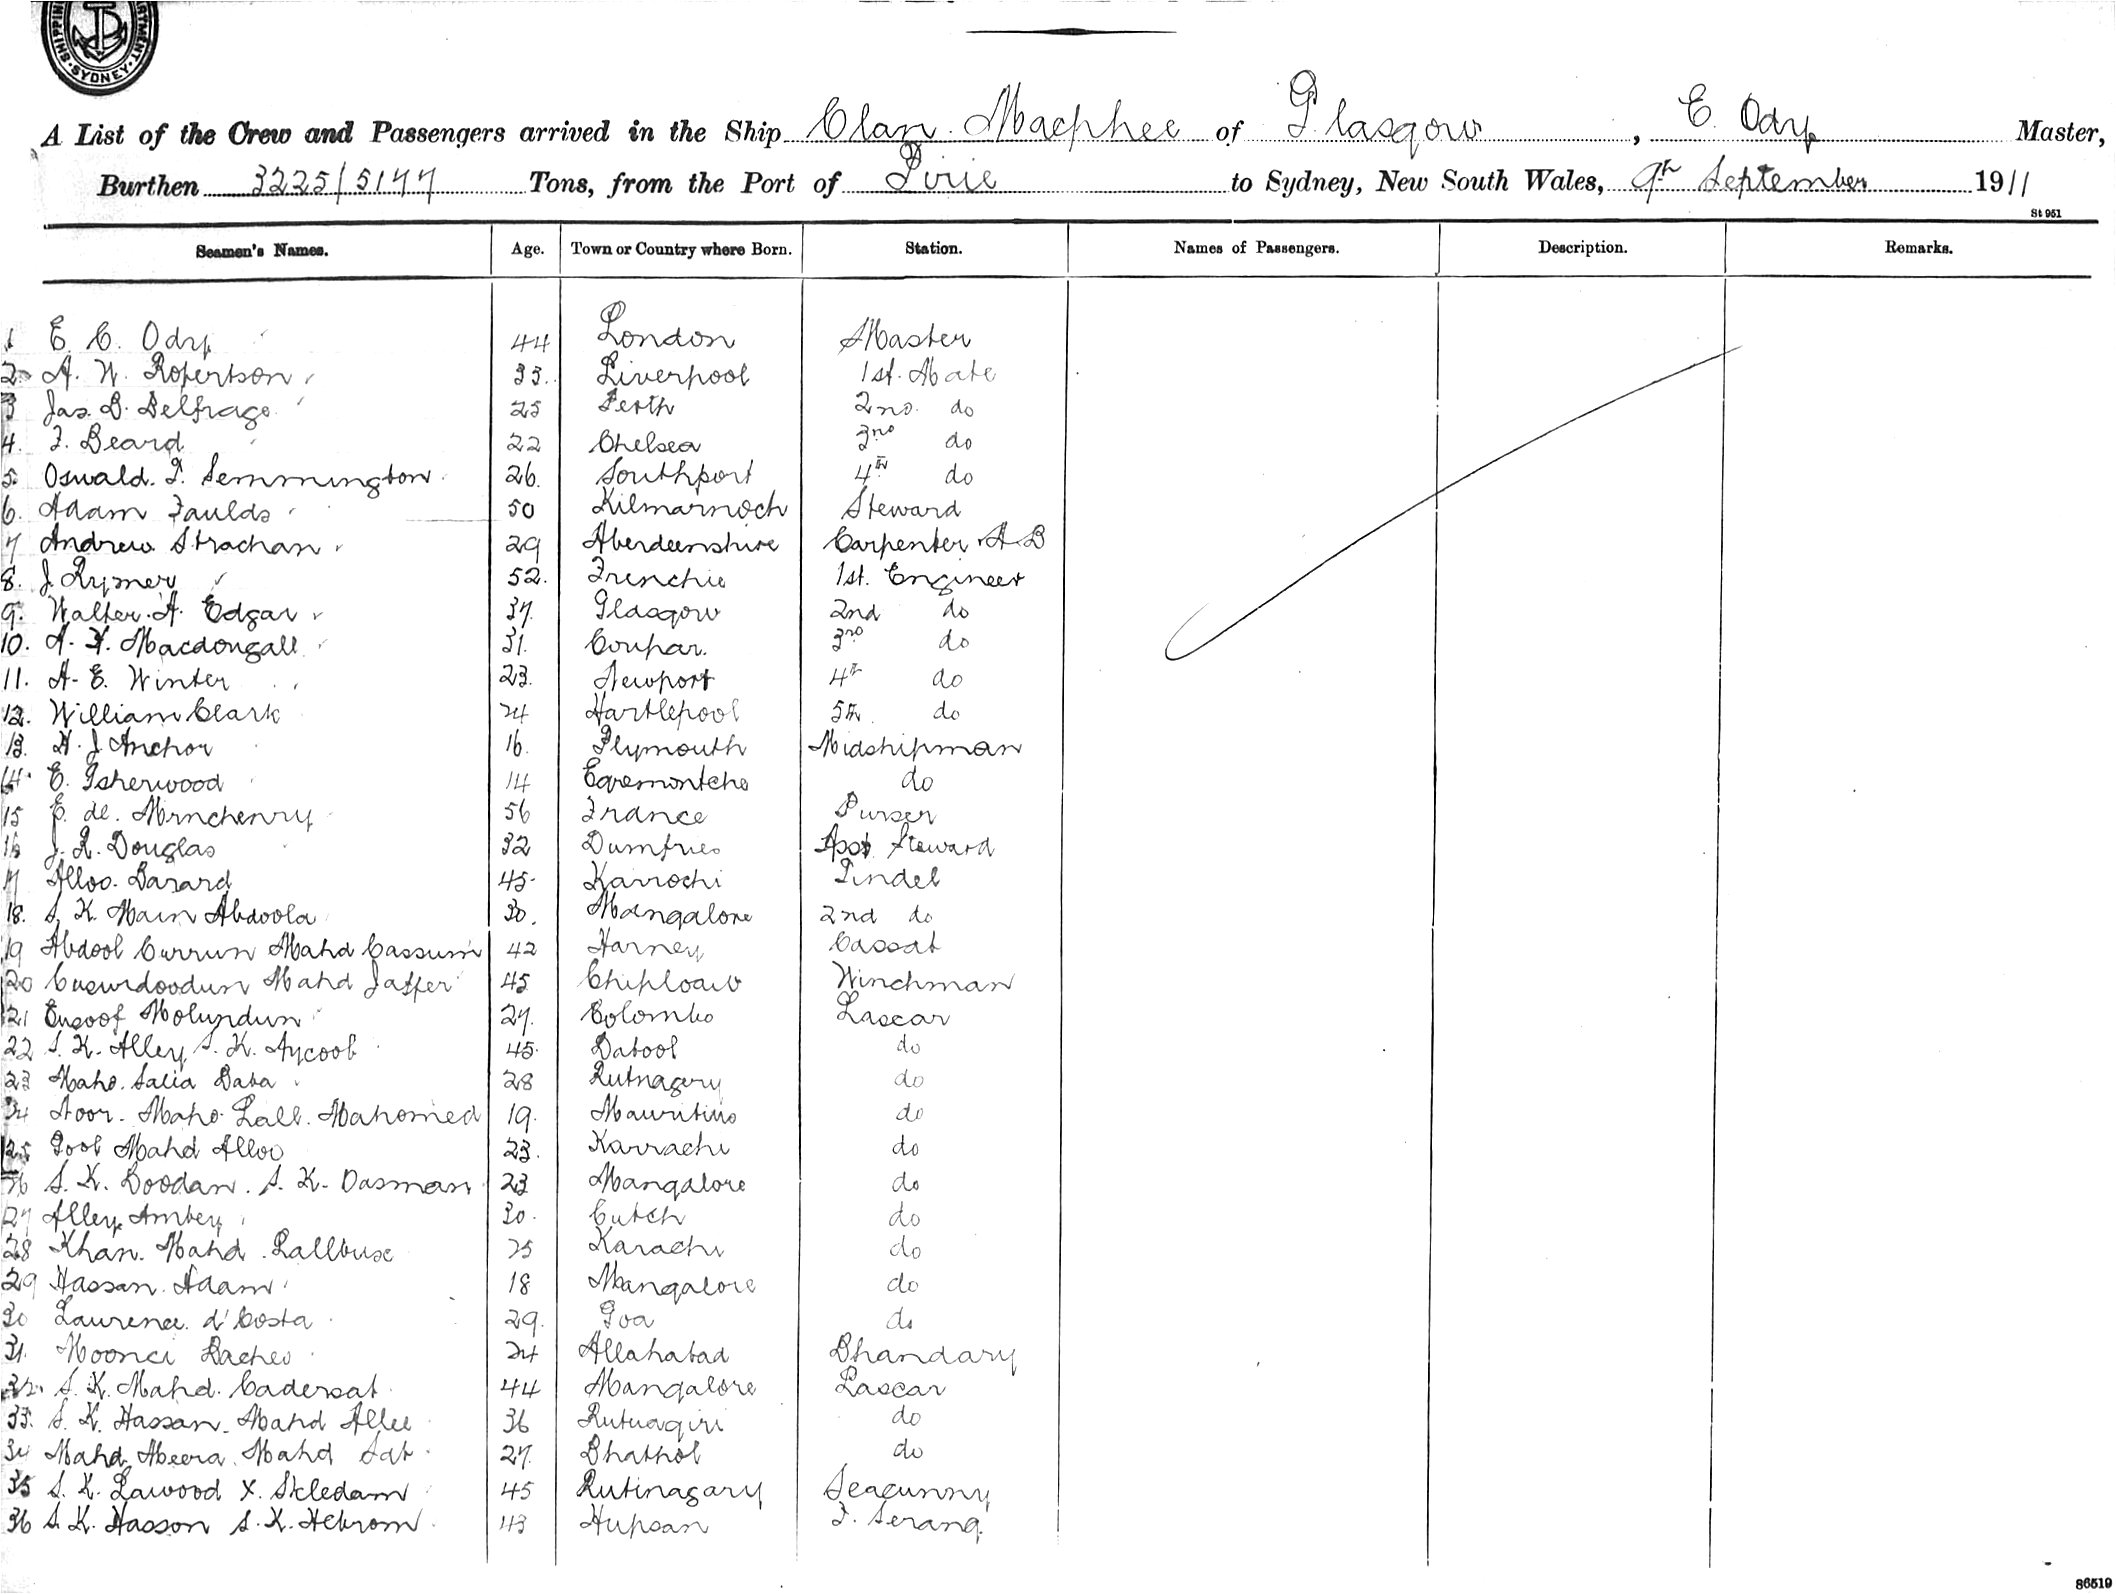 SHIPPING DEPARTMENT SYDNEY
A List of the Crew and Passengers arrived in the Ship Clan Macphee of Glasgow, E. Ody Master,
Burthen 3225/5177 Tons, from the Port of Pirie to Sydney, New South Wales, 9th September 1911
St 951
Seamen's Names. Age. Town or Country where Born. Station. Names of Passengers. Description. Remarks.
1 E. C. Ody 44 London Master
2 A. W. Robertson 33. Liverpool 1st. Mate
3 Jas. B. Belfrage 25 Perth 2nd. do
4. F. Beard 22 Chelsea 3rd do
5. Oswald. T. Semmington 26. Southport 4th do
6. Adam Faulds 50 Kilmarnoch Steward
7 Andrew Strachan 29 Aberdeenshire Carpenter A B
8. J. Rymer 52. Frenchie 1st. Engineer
9. Walter. A. Edgar 37. Glasgow 2nd do
10. A. Macdougall 31. Coupar. 3rd do
11. A. E. Winter 23. Newport 4th do
12. William Clark 24 Hartlepool 5th. do
13. H. J. Anchor 16. Plymouth Midshipman
14. E. Isherwood 14 Egremontche do
15 E. de. Minchenry 56 France Purser
16 J. R. Douglas 32 Dumfries Asst Steward
17 Alloo. Barard 45 Karrochi Tindel
18. S. K. Main Abdoola 30. Mangalore 2nd do
19 Abdool Currun Mahd Cassum 42 Harney Cassab
20 Mahd Jaffer 45 Chiploaw Winchman
21 Eusoof Molundun 27. Colombo Lascar
22 S. K. Alley S. K. Aycoob 45. Dabool do
23 Mahd. Salia Baba 28 Rutnagery do
24 Noor. Mahd. Lall. Mahomed 19. Mauritius do
25 Gool Mahd Alloo 23. Karrachi do
26 S. K. Boodan. S. K. Oasman 23 Mangalore do
27 Alley Ambey 30. Cutch do
28 Khan. Mahd. Lallbux 25 Karachi do
29 Hassan. Adam 18 Mangalore do
30 Laurence. d'Costa 29. Goa do
31. Moonci Bachew 24 Allahabad Bhandary
32. S. K. Mahd. Cadersab 44 Mangalore Lascar
33. S. K. Hassan. Mahd Allee 36 Rutnagiri do
34 Mahd. Meera. Mahd 27. Bhathol do
35 S. K. Dawood X. Skledam 45 Rutinagary Seacunny
36 S. K. Hasson S. K. Hebrom 43 Hupsan F. Serang.
86519